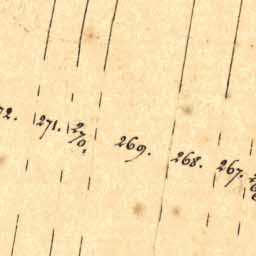 72. 271. 270. 269. 268. 267.